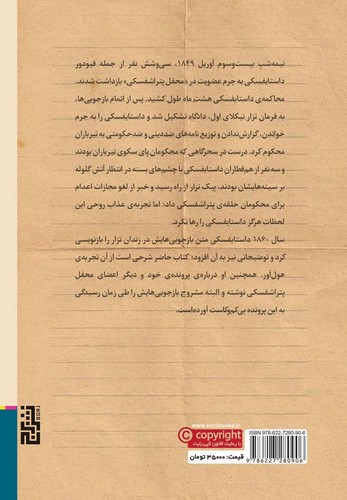 نیمه‌شب بیست‌وسوم آوریل ۱۸۴۹، سی‌وشش نفر از جمله فیودور
داستایفسکی به جرم عضویت در «محفل پتراشفسکی» بازداشت شدند.
محاکمه‌ی داستایفسکی هشت ماه طول کشید. پس از اتمام بازجویی‌ها،
به فرمان تزار نیکلای اول، دادگاه تشکیل شد و داستایفسکی را به جرم
خواندن، گزارش‌ندادن و توزیع نامه‌های ضددینی و ضدحکومتی به تیرباران
محکوم کرد. درست در سحرگاهی که محکومان پای سکوی تیرباران بودند
و سه نفر از هم‌قطاران داستایفسکی با چشم‌های بسته در انتظار آتش گلوله
بر سینه‌هایشان بودند، پیک تزار از راه رسید و خبر از لغو مجازات اعدام
برای محکومان حلقه‌ی پتراشفسکی داد؛ اما تجربه‌ی عذاب روحی این
لحظات هرگز داستایفسکی را رها نکرد.
سال ۱۸۶۰ داستایفسکی متن بازجویی‌هایش در زندان تزار را بازنویسی
کرد و توضیحاتی نیز به آن افزود؛ کتاب حاضر شرحی است از آن تجربه‌ی
هول‌آور. همچنین او درباره‌ی پرونده‌ی خود و دیگر اعضای محفل
پتراشفسکی نوشته و البته مشروح بازجویی‌هایش را طی زمان رسیدگی
به این پرونده بی‌کم‌وکاست آورده‌است.
برج
BORJ
www.borjbooks.ir
© copyright
با رعایت قانون کپی‌رایت
قیمت: ۳۵۰۰۰ تومان
ISBN: 978-622-7280-90-6
9 786227 280906